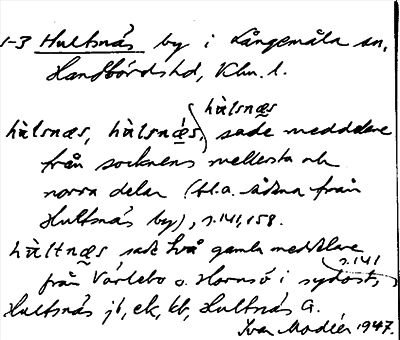 1-3 Hultsnäs by i Långemåla sn,
Handbörds hd, Klm. l.
hùlsnæs
hùlsnæs, hùlsnǽs, sade meddelare
från socknens mellersta och
norra delar (bl.a. från
Hultsnäs by), s. 141, 158.
hùltnæs sade två gamla meddelare
s. 141
från Värlebo o. Hornsö i sydost,
Hultsnäs jb, ek, kb, Hultsnäs G.
Ivar Modéer 1947.